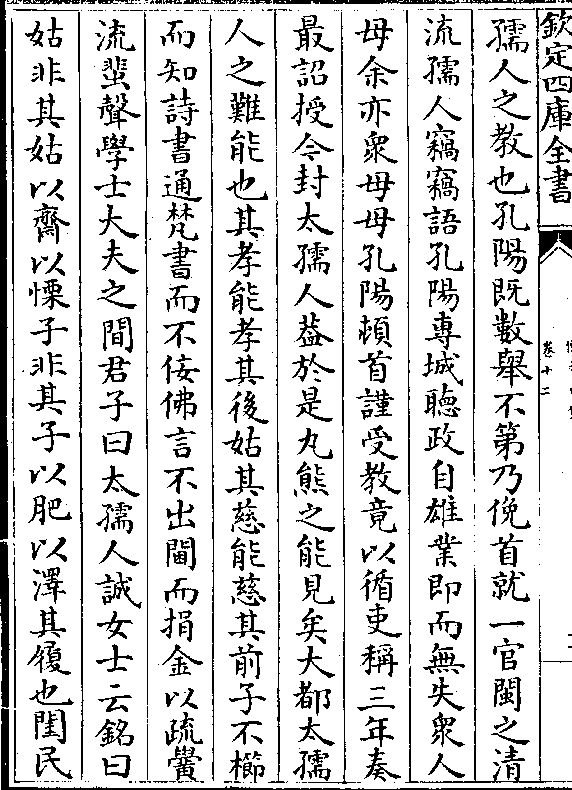 欽定四庫全書
卷十二
孺人之教也孔陽既數舉不第乃俛首就一官閩之清
流孺人竊竊語孔陽專城聽政自雄業即而無失衆人
母余亦衆母母孔陽頓首謹受教竟以循吏稱三年奏
最詔授令封太孺人葢於是丸熊之能見矣大都太孺
人之難能也其孝能孝其後姑其慈能慈其前子不櫛
而知詩書通梵書而不佞佛言不出閫而捐金以疏黌
流蜚聲學士大夫之間君子曰太孺人誠女士云銘曰
姑非其姑以齋以慄子非其子以肥以澤其履也閨民